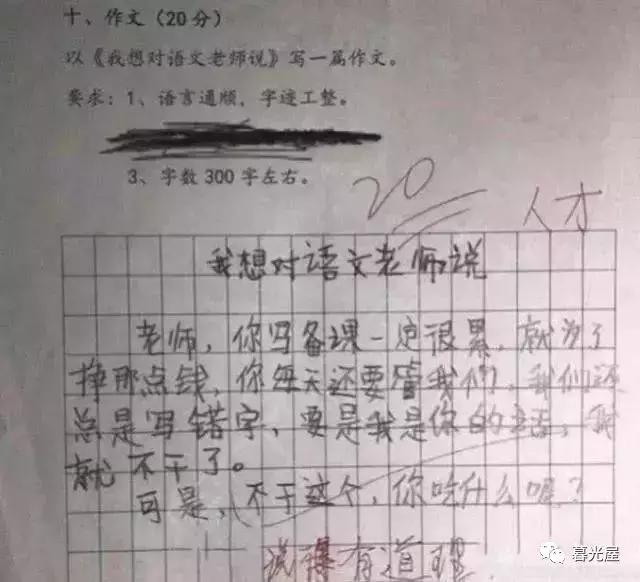 十、作文（20分）
以《我想对语文老师说》写一篇作文。
要求：1、语言通顺，字迹工整。
3、字数300字左右。
20
人才
我想对语文老师说
老师，你写备课一定很累，就为了
挣那点钱，你每天还要管我们，我们还
总是写错字，要是我是你的话，我
就不干了。
可是，不干这个，你吃什么呢？
说得有道理
暮光屋